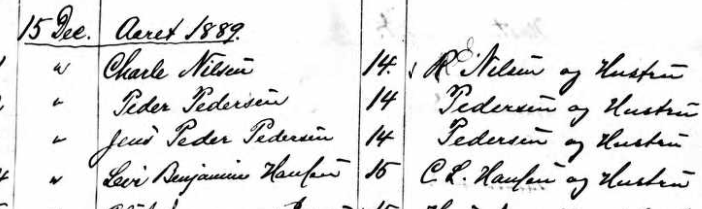 15 Dec. Aaret 1889.
" Charle Nilsen 14. R E Nilsen og Hustru
" Peder Pedersen 14 Pedersen og Hustru
" Jens Peder Pedersen 14 Pedersen og Hustru
4 " Levi Benjamin Hansen 15 C. L. Hansen og Hustru